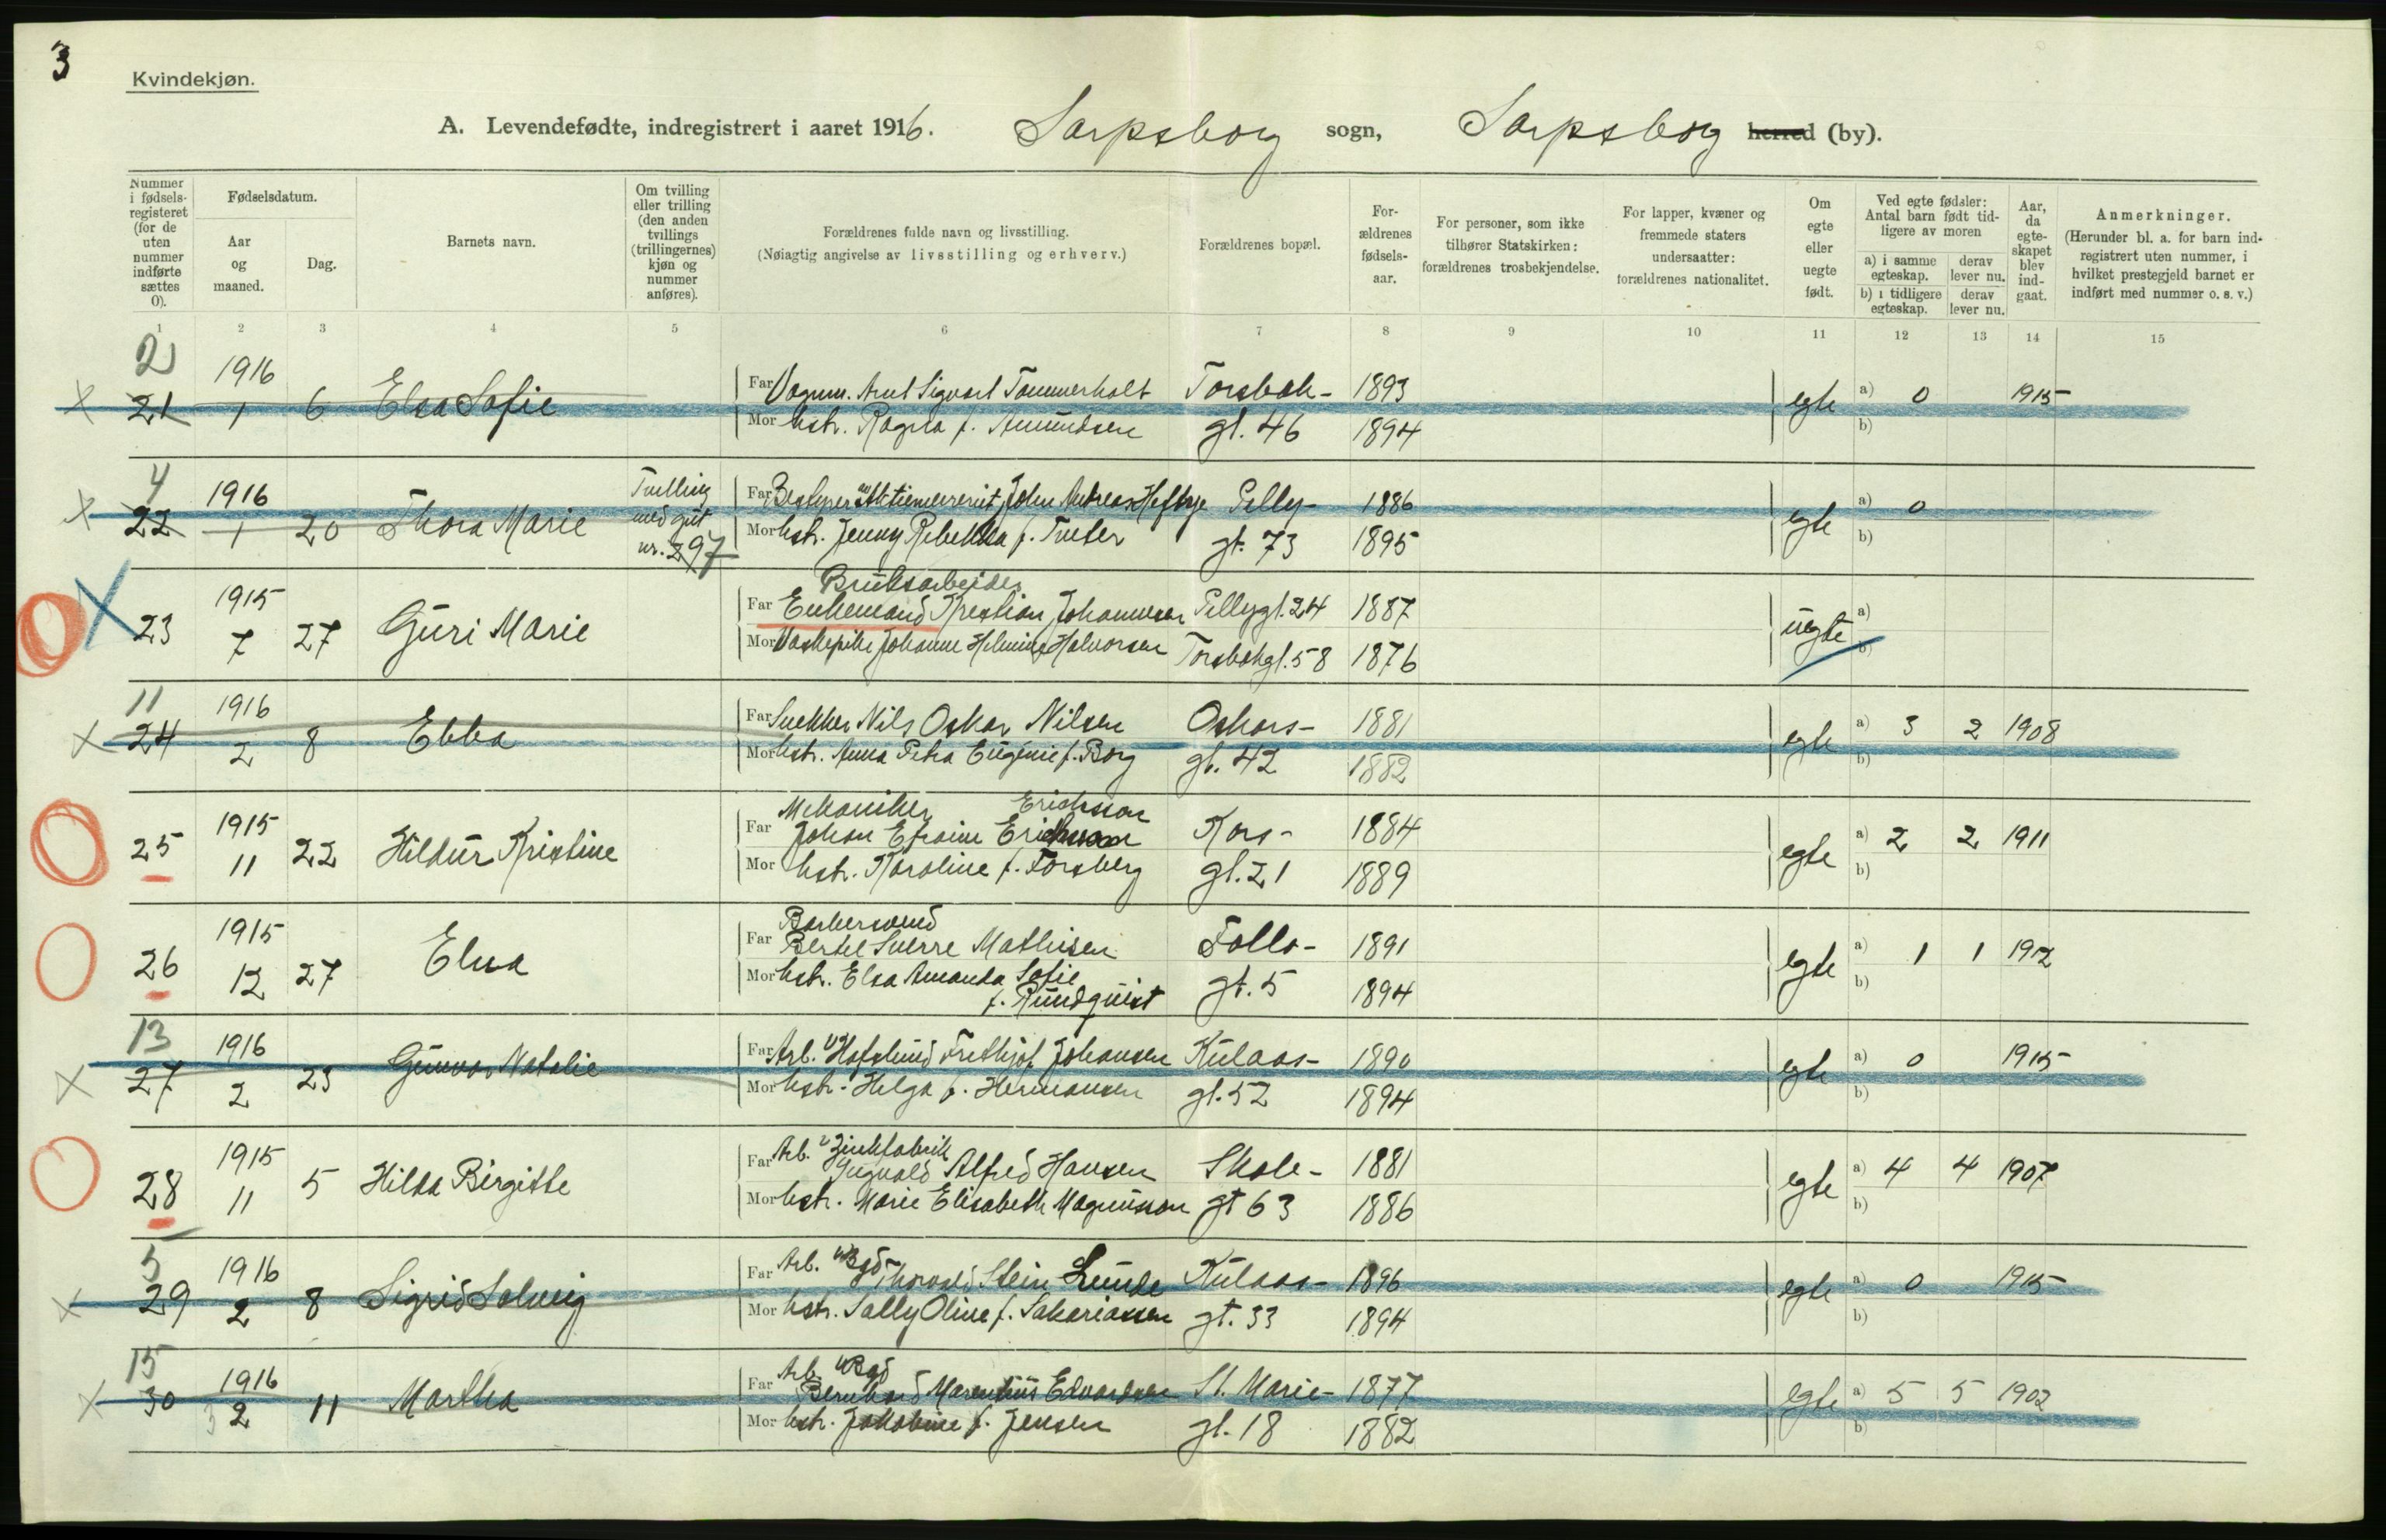 3
Kvindekjøn.
A. Levendefødte, indregistrert i aaret 1916. Sarpsborg sogn, Sarpsborg herred (by).
Nummer i fødselsregisteret (for de uten nummer indførte sættes 0).
Fødselsdatum.
Aar og maaned.
Dag.
Barnets navn.
Om tvilling eller trilling (den anden tvillings (trillingernes) kjøn og nummer anføres).
Forældrenes fulde navn og livsstilling.
(Nøiagtig angivelse av livsstilling og erhverv.)
Forældrenes bopæl.
Forældrenes fødselsaar.
For personer, som ikke tilhører Statskirken: forældrenes trosbekjendelse.
For lapper, kvæner og fremmede staters undersaatter: forældrenes nationalitet.
Om egte eller uegte født.
Ved egte fødsler: Antal barn født tidligere av moren
a) i samme egteskap.
derav lever nu.
b) i tidligere egteskap.
derav lever nu.
Aar, da egteskapet blev indgaat.
Anmerkninger.
(Herunder bl. a. for barn indregistrert uten nummer, i hvilket prestegjeld barnet er indført med nummer o. s. v.)
1 2 3 4 5 6 7 8 9 10 11 12 13 14 15
2
21 1916 1 6 Elsa Sofie
Far Vognm. Arnt Sigvart Tømmerholt Torsbek- 1893 egte a) 0 1915
Mor hstr. Ragna f. Amundsen gt. 46 1894 b)
4
22 1916 1 20 Thora Marie Tvilling med gut nr. 297
Far Bestyrer John Andreas Heftye Pelly- 1886 egte a) 0
Mor hstr. Jenny Rebekka f. Tveter gt. 73 1895 b)
23 1915 7 27 Guri Marie
Bruksarbeider
Far Enkemand Kristian Johannesen Pellygt. 24 1887 uegte a)
Mor Vaskepike Johanne Helmine Halvorsen Torsbekgt. 58 1876 b)
11
24 1916 2 8 Ebba
Far Snekker Nils Oskar Nilsen Oskars- 1881 egte a) 3 2 1908
Mor hstr. Anna Petra Eugenie f. Borg gt. 42 1882 b)
25 1915 11 22 Hildur Kristine
Mekaniker Erichsson
Far Johan Efraim Kors- 1884 egte a) 2 2 1911
Mor hstr. Karoline f. Forsberg gt. 21 1889 b)
26 1915 12 27 Elna
Barbersvend
Far Bertel Sverre Mathisen Follo- 1891 egte a) 1 1 1912
Mor hstr. Elsa Amanda Sofie
f. Rundquist gt. 5 1894 b)
13
27 1916 2 23 Gunvor Natalie
Far Arb. v/Hafslund Frithjof Johansen Kulaas- 1890 egte a) 0 1915
Mor hstr. Helga f. Hermansen gt. 52 1894 b)
28 1915 11 5 Hilda Birgitte
Arb. v Zinkfabrik
Far Ingvald Alfred Hansen Skole- 1881 egte a) 4 4 1907
Mor hstr. Marie Elisabeth Magnusson gt 63 1886 b)
5
29 1916 2 8 Sigrid Solveig
Arb. v/Bgd
Far Thorvald Stein Lunde Kulaas- 1896 egte a) 0 1915
Mor hstr. Sally Oline f. Sakariassen gt. 33 1894 b)
15
30 1916 3 2 11 Martha
Arb. v/Bgd
Far Bernhard Marentius Edvardsen St. Marie- 1877 egte a) 5 5 1902
Mor hstr. Jakobine f. Jensen gt. 18 1882 b)